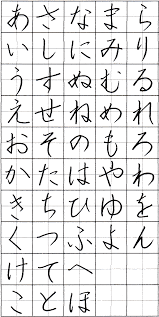 あ さ な ま ら
い し に み り
う す ぬ む る
え せ ね め れ
お そ の も ろ
か た は や わ
き ち ひ ゆ を
く つ ふ よ ん
け て へ
こ と ほ